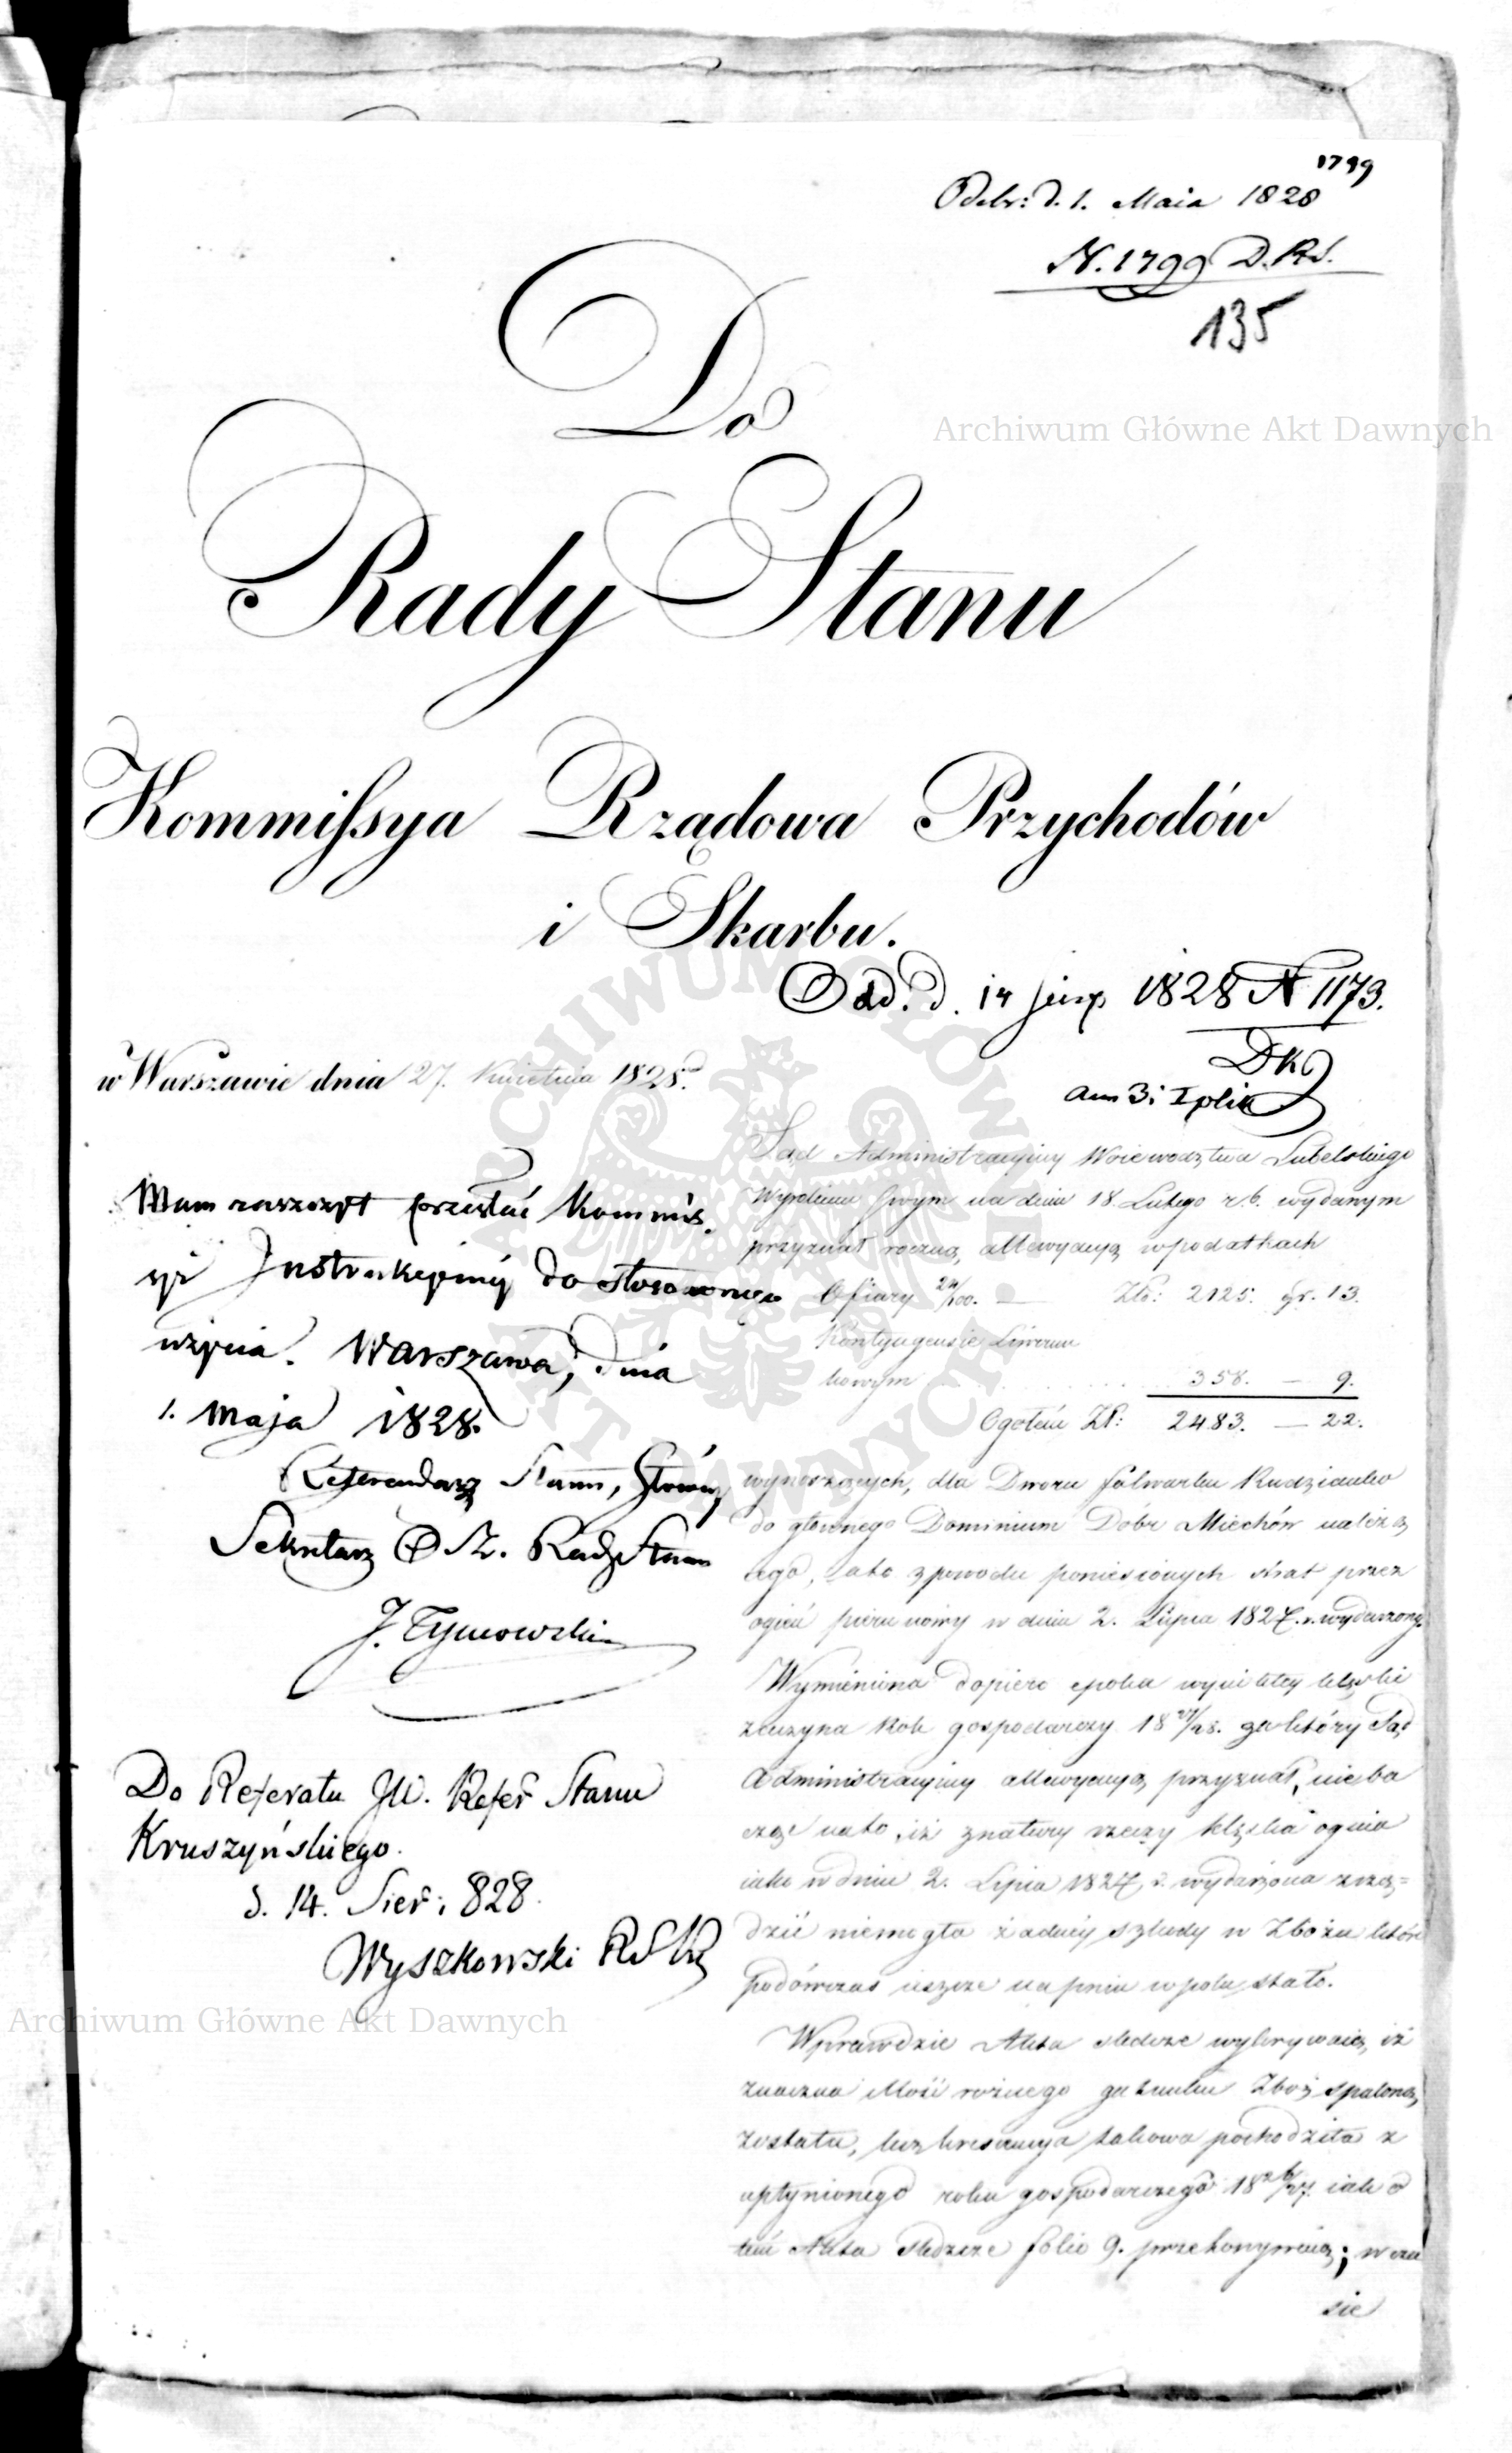 1799
Odebr: d. 1. Maia 1828
N. 1799 D.R.S.
135
Archiwum Główne Akt Dawnych
Do
Rady Stanu
Kommissya Rządowa Przychodów
i Skarbu.
Odd. d. 14 1828 N 1173.
w Warszawie dnia 27. Kwietnia 1828.
Mam zaszczyt przesłać Kommis-
syi Instrukcyiney do stosownego
użycia. Warszawa, dnia
1. Maja 1828.
Referendarz Stanu,
Sekretarz Rady Stanu
J. Tymowski
Do Referatu JW. Refer Stanu
Kruszyńskiego.
d. 14. Sier: 828.
Wyszkowski
Sąd Administracyiny Woiewodztwa Lubelskiego
Wyrokiem swym na dniu 18. Lutego r. b. wydanym
przyznał roczną allewyacyą w podatkach
Ofiary 24/100. — Złt: 2125. gr. 13.
Kontyngensie Liwerun
kowym 358. — 9.
Ogółem Zł: 2483. — 22.
wynoszących, dla Dworu folwarku Rudzianko
do głównego Dominium Dóbr Miechów należą
cego, a to z powodu poniesionych strat przez
ogień pierunowy w dniu 2. Lipca 1827. r. wydarzony.
Wymieniona dopiero epoka wynikłey klęski
zaczyna Rok gospodarczy 18 27/28. za który Sąd
Administracyiny allewyacyą przyznał, nieba
cząc na to, iż z natury rzeczy klęska ognia
iako w dniu 2. Lipca 1827 r. wydarzona zrzą=
dzić niemogła żadney szkody w Zbożu które
podówczas ieszcze na pniu w polu stało.
Wprawdzie Akta śledcze wykrywaią, iż
znaczna ilość rożnego gatunku Zboż spaloną
została, lecz krescencya takowa pochodziła z
upłynionego roku gospodarczego 18 26/27. iak o
tem Akta śledcze folio 9. przekonywaią; w cza
sie
Archiwum Główne Akt Dawnych
ARCHIWUM GŁÓWNE AKT DAWNYCH